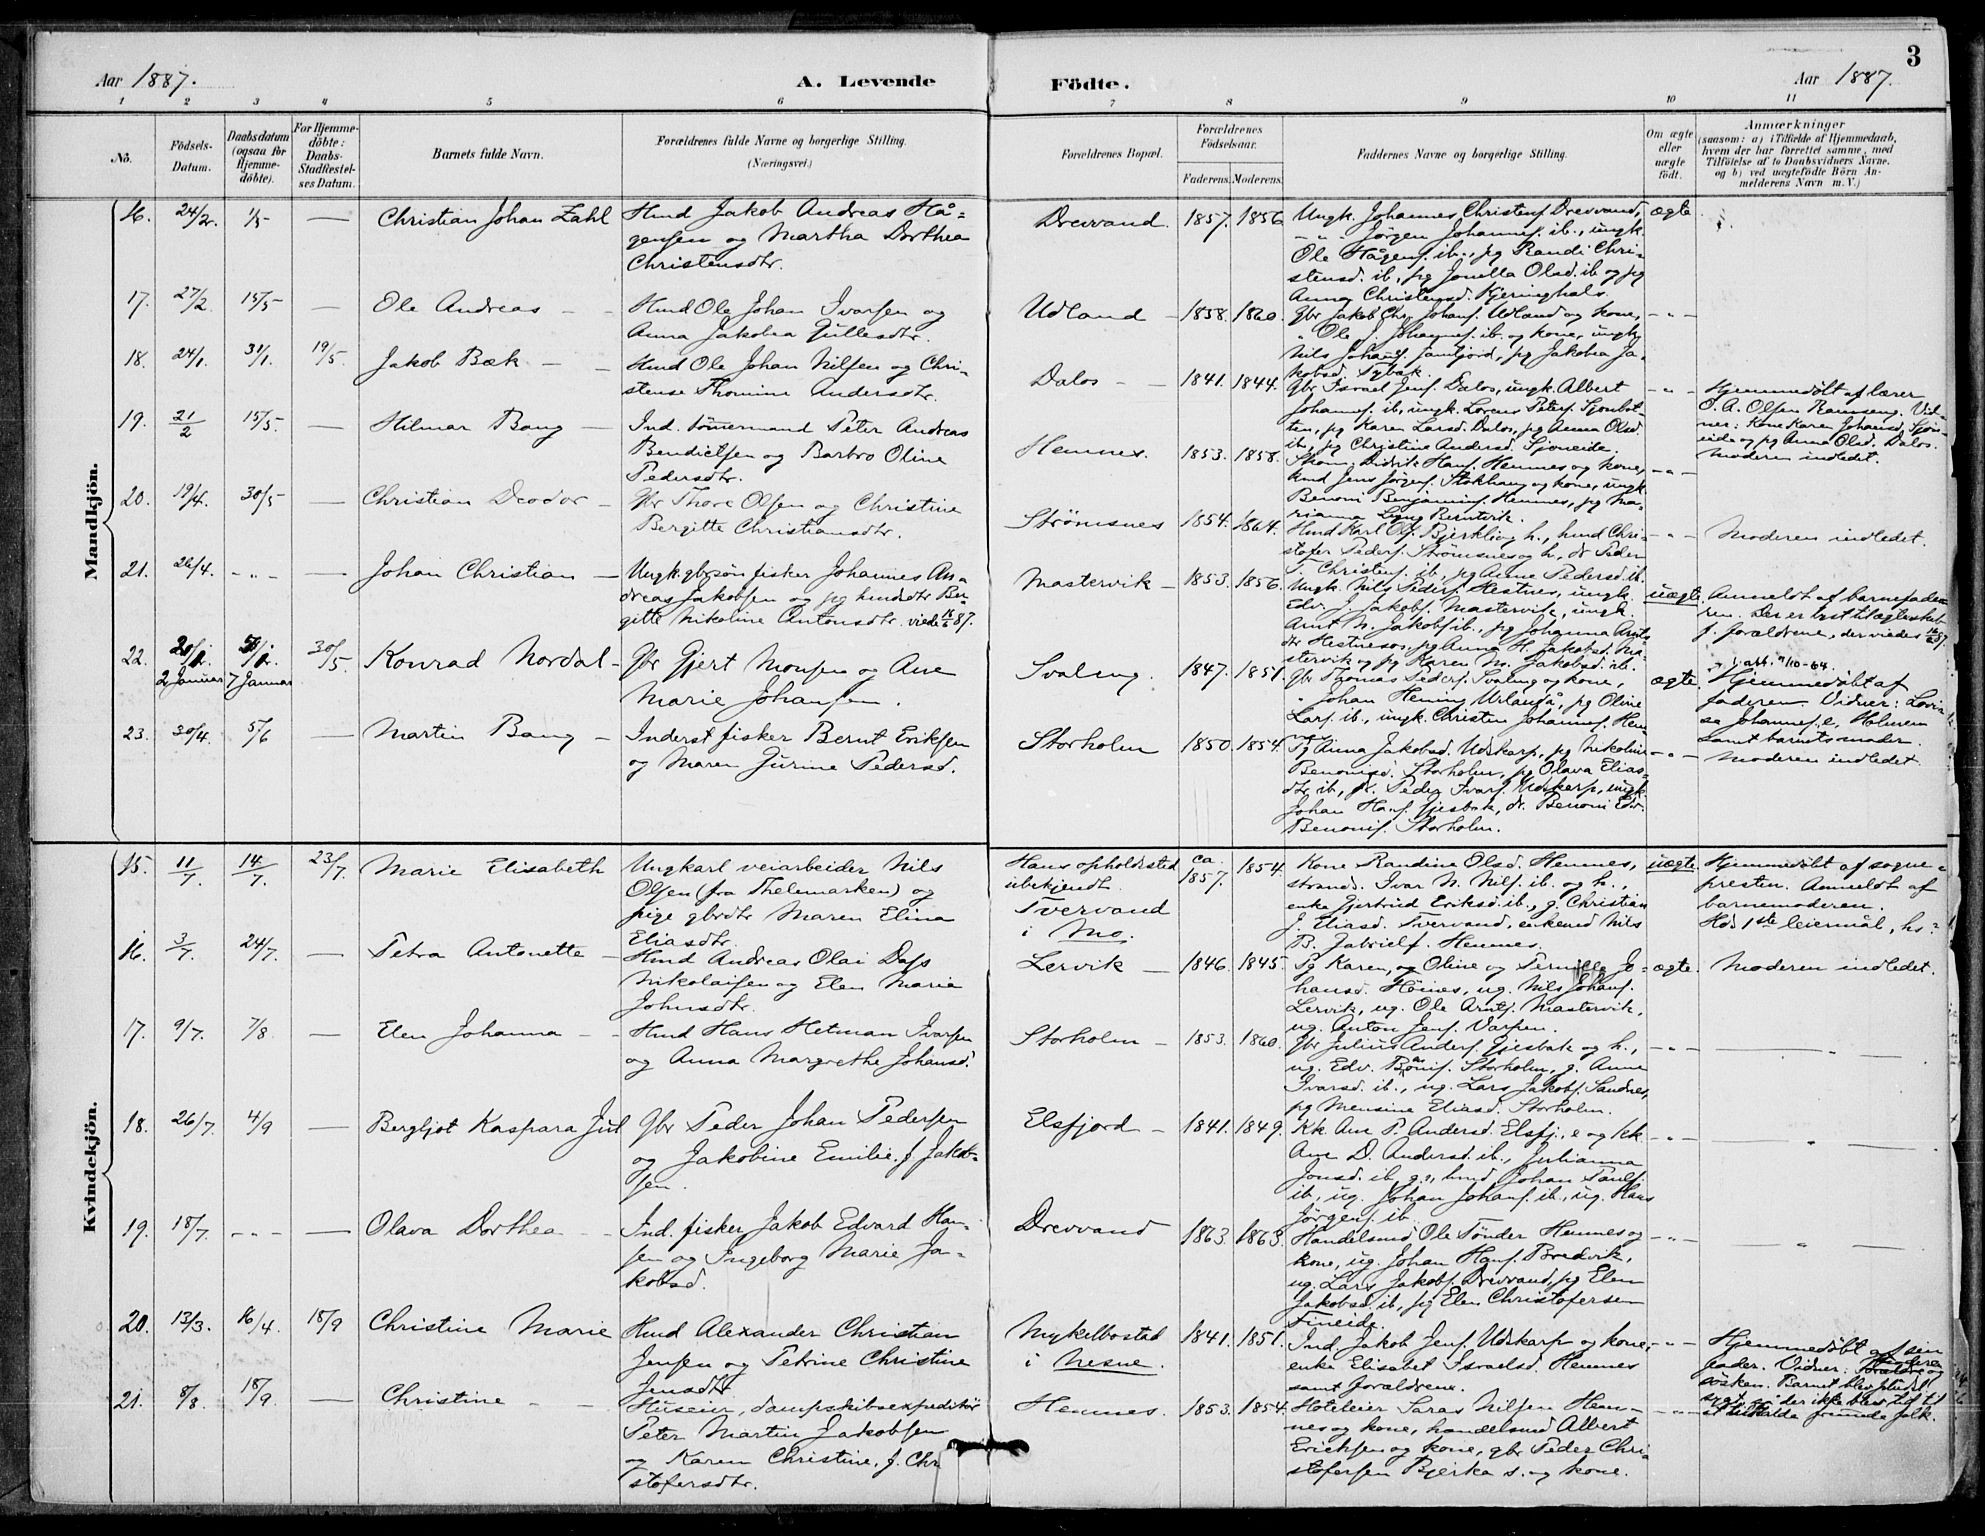 Aar 1887. A. Levende Födte. Aar 1887. 3
1 2 3 4 5 6 7 8 9 10 11
No.
Födsels-Datum.
Daabsdatum (ogsaa for Hjemme-döbte).
For Hjemme-döbte: Daabs-Stadfestel-ses Datum.
Barnets fulde Navn.
Forældrenes fulde Navne og borgerlige Stilling.
(Næringsvei.)
Forældrenes Bopæl.
Forældrenes Födselsaar.
Faderens. Moderens.
Faddernes Navne og borgerlige Stilling.
Om ægte eller uægte födt.
Anmærkninger
(saasom: a) i Tilfælde af Hjemmedaab,
hvem der har forrettet samme, med
Tilföielse af to Daabsvidners Navne.
og b) ved uægtefödte Börn An-
melderens Navn m. V.)
Mandkjön.
16. 24/2. 1/5 — Christian Johan Zahl
Hmd Jakob Andreas Hå-
gensen og Martha Dorthea
Christensdtr.
Drevvand. 1857. 1856
Ungk. Johannes Christens. Drevvand,
" Jörgen Johannes. ib., ungk.
Ole Hågens. ib., pg Randi Chri-
stensd. ib., pg Jonella Olsd. ib og pg
Anna Christensd. Kjeringhals.
ægte
17. 27/2 15/5 — Ole Andreas
Hmd Ole Johan Ivarsen og
Anna Jakobea Gullesdtr.
Udland 1858. 1860.
Gbr Jakob Chr. Johans. Udland og kone,
" Ole J. Johannes. ib. og kone, ungk
Nils Johans. , pg Jakobea Ja-
kobsd. .
18. 24/1. 31/1. 19/5. Jakob Bæk
Hmd Ole Johan Nilsen og Chri-
stense Thomine Andersdtr.
Dalos 1841. 1844.
Gbr Israel Jens. Dalos, ungk. Albert
Johannes. ib., ungk. Lorens Peters.
, pg Karen Larsd. Dalos, pg Anna Olsd.
ib., pg Christine Andersd. Sjoneide.
Hjemmedöbt af lærer
O. A. Olsen Ramseng. Vid-
ner: Kone Karen Johansd. Sjon-
eide og pg Anna Olsd. Dalos.
Moderen indledet.
19. 21/2 15/5. — Hilmar Bang
Ind. tömermand Peter Andreas
Bendictsen og Barbro Oline
Pedersdtr.
Hemnes. 1853. 1858.
Skom. Didrik Hans. Hemnes og kone,
hmd Jens Jörgens. og kone, ungk.
Benoni Benjamins. Hemnes, pg Ma-
rianna Berntvik.
20. 19/4. 30/5 — Christian Deodor
Gbr Thore Olsen og Christine
Bergitte Christiansdtr.
Strömsnes 1854. 1864.
Hmd Karl Ols. Bjerkli og h., hmd Chri-
stofer Peders. Strömsnes og h., dr Peder
T. Christens. ib., pg Anne Pedersd. ib.
Moderen indledet.
21. 26/4. - " - — Johan Christian
Ungk. gbrsön fisker Johannes An-
dreas Jakobsen og pg hmdsdtr Ber-
gitte Nikoline Antonsdtr. viede 16/6 87.
Mastervik 1853. 1856.
Ungk. Nils Peders. Hestnes, ungk.
Edv. J. Jakobs. Mastervik, ungk.
Arnt N. Jakobs ib., pg Johanna Arnts-
dtr Hestnesos, pg Anna H. Jakobsd. Ma-
stervik og pg Karen M. Jakobsd. ib.
uægte
Anmeldt af barnefade-
ren. Der er lyst til ægteskab
f. foreldrene, der viedes 16/6 87.
22. 2 Januar 7 Januar 30/5 Konrad Nordal
Gbr Gjert Monsen og Ane
Marie Johansen.
Svaleng. 1847. 1851.
Gbr Thomas Peders. Svaleng og kone,
" Johan Heming Urlandå, pg Oline
Lars. ib., ungk. Christen Johannes. Hem-
ægte
Hjemmedöbt af
faderen. Vidner:
Johannes. e, Holmen
samt barnets moder.
23. 30/4. 5/6 — Martin Bang
Inderst fisker Bernt Eriksen
og Maren Gurine Pedersd.
Storholm 1850. 1854.
Pg Anna Jakobsd. Utskarp, pg Nikoline
Benonisd. Storholm, pg Olava Elias-
dtr ib, dr. Peder Ivars. Utskarp, ungk.
Johan Hans. Gjesbak, dr. Benoni Edv.
Benonis. Storholm.
Moderen indledet.
Kvindekjön.
15. 11/7. 14/7. 23/7. Marie Elisabeth
Ungkarl veiarbeider Nils
Olsen (fra Thelemarken) og
pige gbrdtr Maren Elina
Eliasdtr.
Hans opholdssted
ubekjendt.
Tvervand
i Mo.
ca. 1857. 1854.
Kone Randine Olsd. Hemnes,
strands. Ivar N. Nils. ib. og h.,
enke Gjertrud Eriksd. ib., g. Christian
J. Eliasd. Tvervand, enkemd Nils
B. Gabriels. Hemnes.
uægte.
Hjemmedöbt af sogne-
presten. Anmeldt af
barnemoderen.
Hds 1ste leiermål, hs
16. 3/7. 24/7. — Petra Antonette
Hmd Andreas Olai Dass
Nikolaisen og Elen Marie
Johnsdtr.
Lervik 1846. 1845.
Pg Karen, og Oline og Pernille Jo-
hansd. , ug. Nils Johans.
Lervik, ug. Ole Arnts. Mastervik,
ug. Anton Jens. Varpen.
ægte.
Moderen indledet.
17. 9/7. 7/8 — Elen Johanna
Hmd Hans Hetman Ivarsen
og Anna Margrethe Johansd.
Storholm 1853. 1860.
Gbr Julius Anders. Gjesbak og h.,
ug. Edv. Bonis. Storholm, g. Anne
Ivarsd. ib., ug. Lars Jakobs. Sandnes,
pg Mensine Eliasd. Storholm.
18. 26/7. 4/9 — Bergljot Kaspara Jul
Gbr Peder Johan Pedersen
og Jakobine Emilie f. Jakob-
sen.
Elsfjord 1841. 1849.
Kk Ane P. Andersd. Elsfj., e og kk
Ane D. Andersd. ib., Julianna
Jonsd. ib, g., hmd Johan Pauls.
ib., ug. Johan Johans. ib., ug. Hans
Jörgens. ib.
19. 18/7. - " - — Olava Dorthea
Ind. fisker Jakob Edvard Han-
sen og Ingeborg Marie Ja-
kobsd.
Drevvand 1863. 1863.
Handelsmd Ole Tönder Hemnes og
kone, ug. Johan Hans. Bredvik,
ug. Lars Jakobs. Drevvand, pg Elen
Jakobsd. ib, pg Elen Christofersen
Fineide.
20. 13/3. 16/4. 18/9 Christine Marie
Hmd Alexander Christian
Jensen og Petrine Christine
Jensdtr.
Mykelbostad
i Nesne.
1841. 1851.
Ind. Jakob Jens. Utskarp og kone,
enke Elisabet Israelsd. Hemnes
samt forældrene.
Hjemmedöbt af sin
fader. Vidner: forældre og
sösken. Barnet blev pludsl.
sygt, der ikke blev tid til
at tilkalde fremmede folk.
21. 8/8. 18/9. — Christine
Huseier, dampskibsexpeditör
Peter Martin Jakobsen
og Karen Christine f. Chri
stofersdtr.
Hemnes. 1853. 1854.
Hoteleier Saras Nilsen Hem-
nes og kone, handelsmd Albert
Ericksen og kone, gbr Peder Chri-
stofersen Bjerka s. og kone.